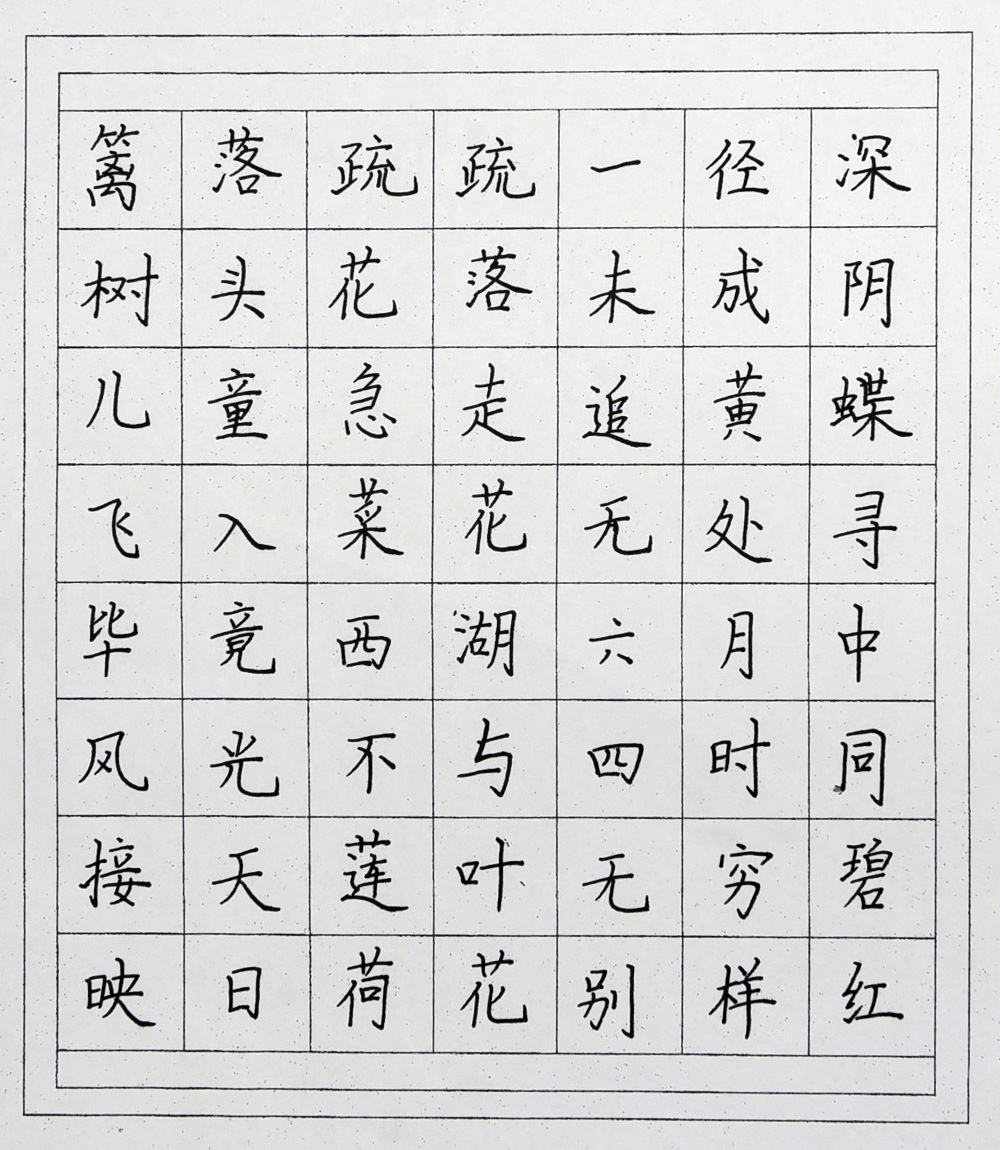 篱落疏疏一径深
树头花落未成阴
儿童急走追黄蝶
飞入菜花无处寻
毕竟西湖六月中
风光不与四时同
接天莲叶无穷碧
映日荷花别样红